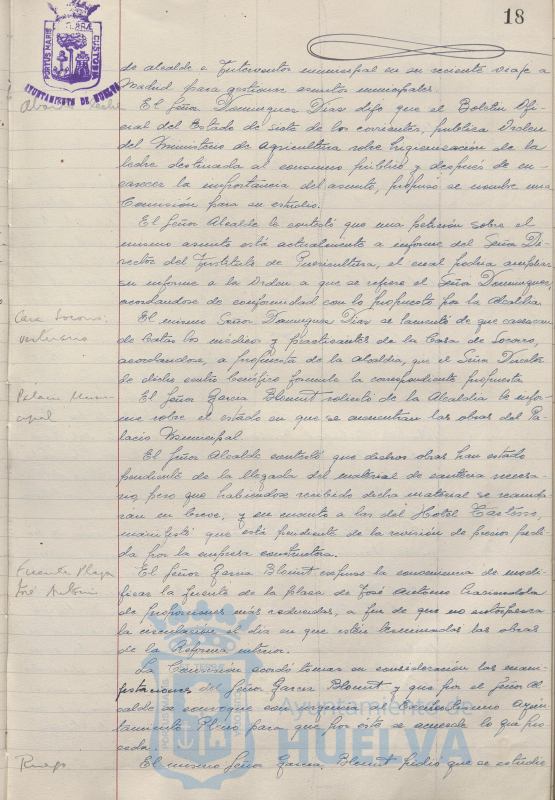 18
PORTUS MARIS ET TERRAE CUSTODIA
AYUNTAMIENTO DE HUELVA
de alcalde e Interventor municipal en su reciente viaje a
Madrid para gestionar asuntos municipales.
El Señor Dominguez Diaz dijo que el Boletin Ofi-
cial del Estado de siete de los corrientes, publica Orden
del Ministerio de Agricultura sobre higienización de la
leche destinada al consumo público y después de en-
carecer la importancia del asunto, propuso se nombre una
Comisión para su estudio.
El Señor Alcalde le contestó que una petición sobre el
mismo asunto está actualmente a informe del Señor Di-
rector del Instituto de Puericultura, el cual podrá ampliar
su informe a la Orden a que se refiere el Señor Dominguez,
acordandose de conformidad con lo propuesto por la Alcaldia.
Casa Socorro:
vestuario
El mismo Señor Dominguez Diaz se lamentó de que carezcan
de batas los médicos y practicantes de la Casa de Socorro,
acordandose, a propuesta de la Alcaldia, que el Señor Director
de dicho centro benéfico formule la correspondiente propuesta.
Palacio Muni-
cipal
El Señor Garcia Blomut solicitó de la Alcaldia le infor-
me sobre el estado en que se encuentran las obras del Pa-
lacio Municipal.
El Señor Alcalde contestó que dichas obras han estado
pendientes de la llegada del material de cantera necesa-
rio, pero que habiendose recibido dicho material se reanuda-
rán en breve; y en cuanto a las del Hotel
manifestó que está pendiente de la revisión de precios pedi-
da por la empresa constructora.
Fuente Plaza
José Antonio
El Señor Garcia Blomut expuso la conveniencia de modi-
ficar la fuente de la plaza de José Antonio haciendola
de proporciones más reducidas, a fin de que no entorpezca
la circulación el dia en que estén terminadas las obras
de la Reforma interior.
La Comisión acordó tomar en consideración las mani-
festaciones del Señor Garcia Blomut y que por el Señor Al-
calde se convoque con urgencia al Excelentisimo Ayun-
tamiento Pleno para que por éste se acuerde lo que pro-
ceda.
Ruego
El mismo Señor Garcia Blomut pidió que se estudie
Ayuntamiento de
HUELVA